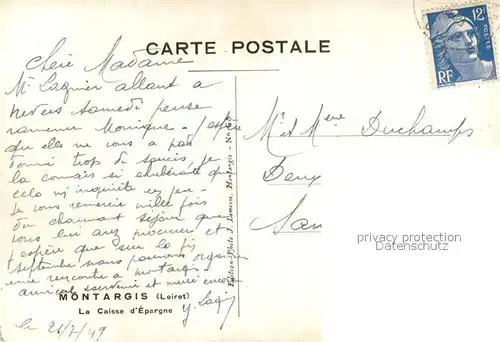 CARTE POSTALE
12F
POSTES
RF
Chère Madame
Mr Lagnier allant à
Nevers Samedi pense
ramener Monique. J'espère
qu'elle ne vous a pas
donné trop de soucis, je
la connais si exubérante que
cela m'inquiète un peu.
Je vous remercie mille fois
du charmant séjour que
vous lui avez procuré et
j'espère que sur la fin
Septembre nous pourrons organiser
une rencontre à Montargis
amical souvenir et merci encore
le 21/7/49
Mr et Mme Duchamps
MONTARGIS (Loiret)
La Caisse d'Épargne
Edition Photo J. Montargis - No
privacy protection
Datenschutz